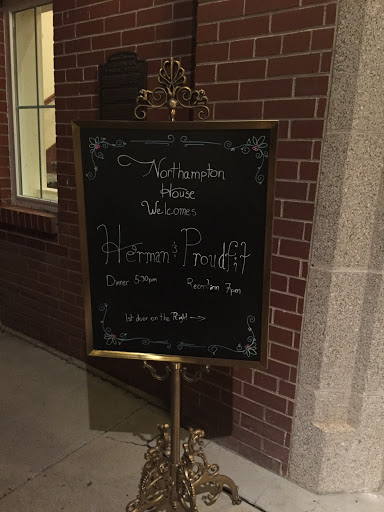 Northampton
House
Welcomes
Herman & Proudfit
Dinner 5:30pm Reception 7pm
1st door on the Right →